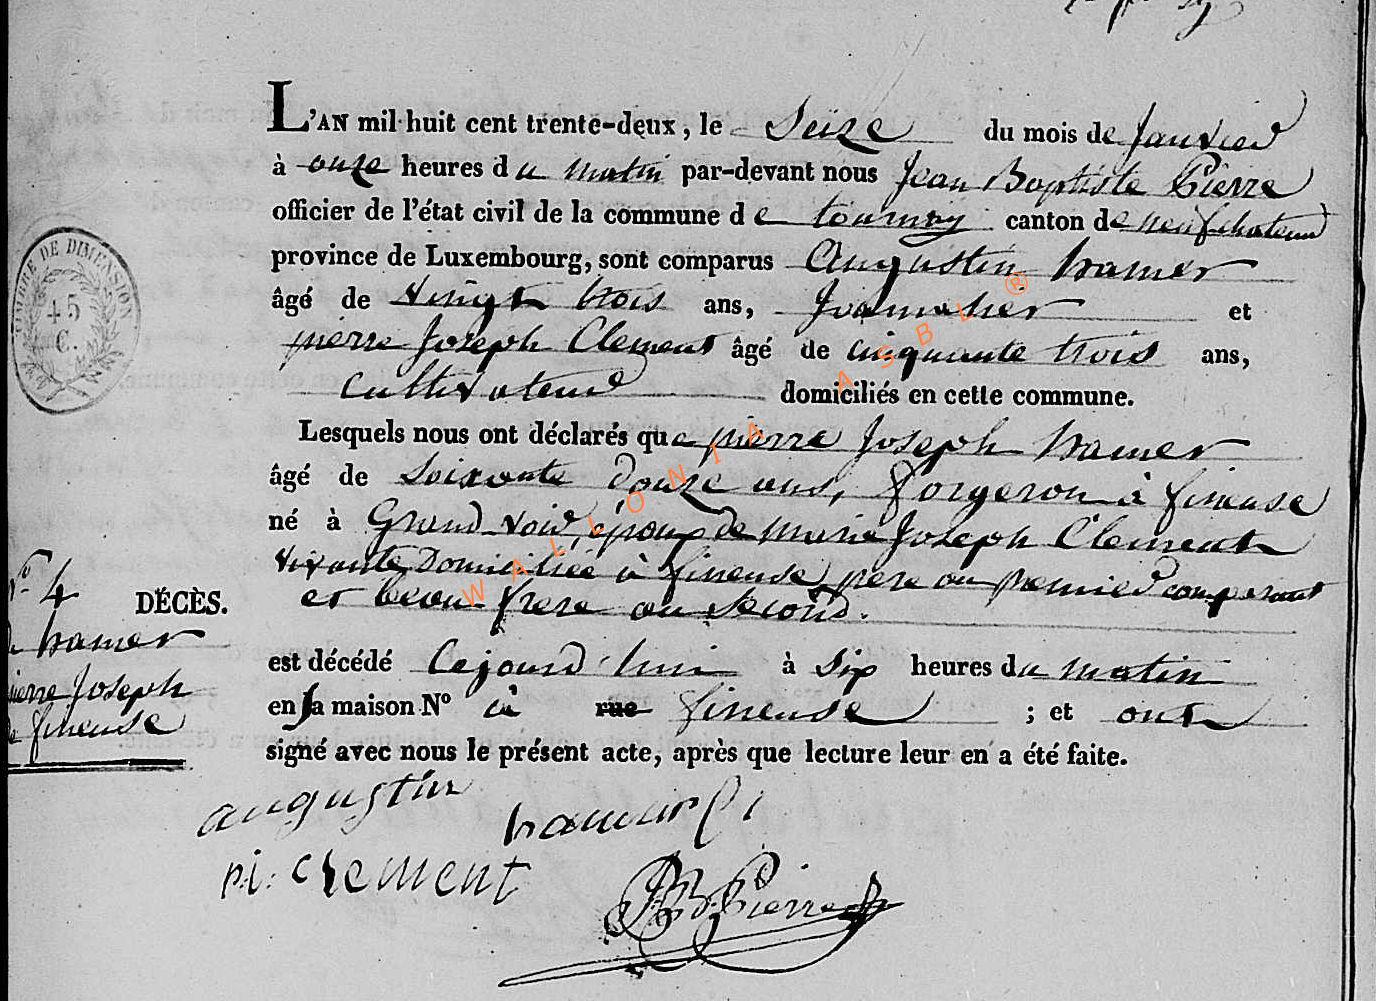 L'AN mil huit cent trente-deux, le Seize du mois de Janvier
à onze heures du matin par-devant nous Jean Baptiste Pierre
officier de l'état civil de la commune de tournay canton de neufchateau
province de Luxembourg, sont comparus Augustin hamer
âgé de vingt trois ans, Journalier et
pierre Joseph Clement âgé de cinquante trois ans,
Cultivateur domiciliés en cette commune.
Lesquels nous ont déclarés que pierre Joseph hamer
âgé de Soixante douze ans, forgeron à fineuse
né à Grand voir, époux de Marie Joseph Clement
vivante Domiciliée à fineuse, pere au premier comparant
et beau-frere au Second.
N.° 4
DÉCÈS.
hamer
pierre Joseph
de fineuse
est décédé Cejourd'hui à Six heures du matin
en sa maison N° à rue fineuse ; et ont
signé avec nous le présent acte, après que lecture leur en a été faite.
augustin
p.i. clement
JB Pierre
TIMBRE DE DIMENSION
45
C.
WALLONIA ASBL ®